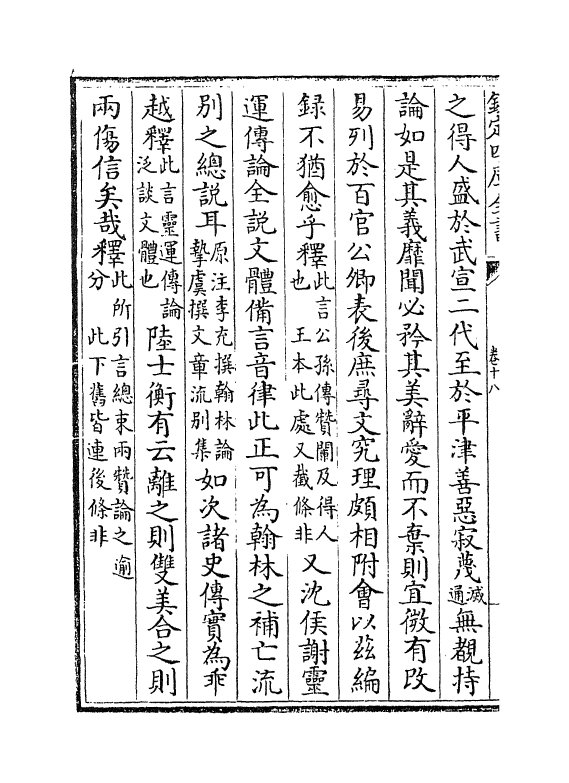 欽定四庫全書
卷十八
之得人盛於武宣二代至於平津善惡寂蔑滅通無覩持
論如是其義靡聞必矜其美辭愛而不棄則宜微有改
易列於百官公卿表後庶尋文究理頗相附會以兹編
録不猶愈乎釋此言公孫傳贊闌及得人也 王本此處又截條非又沈侯謝靈
運傳論全説文體備言音律此正可為翰林之補亡流
别之總説耳原注李充撰翰林論摯虞撰文章流别集如次諸史傳實為乖
越釋此言靈運傳論泛談文體也陸士衡有云離之則雙美合之則
兩傷信矣哉釋此所引言總束兩贊論之逾分 此下舊皆連後條非